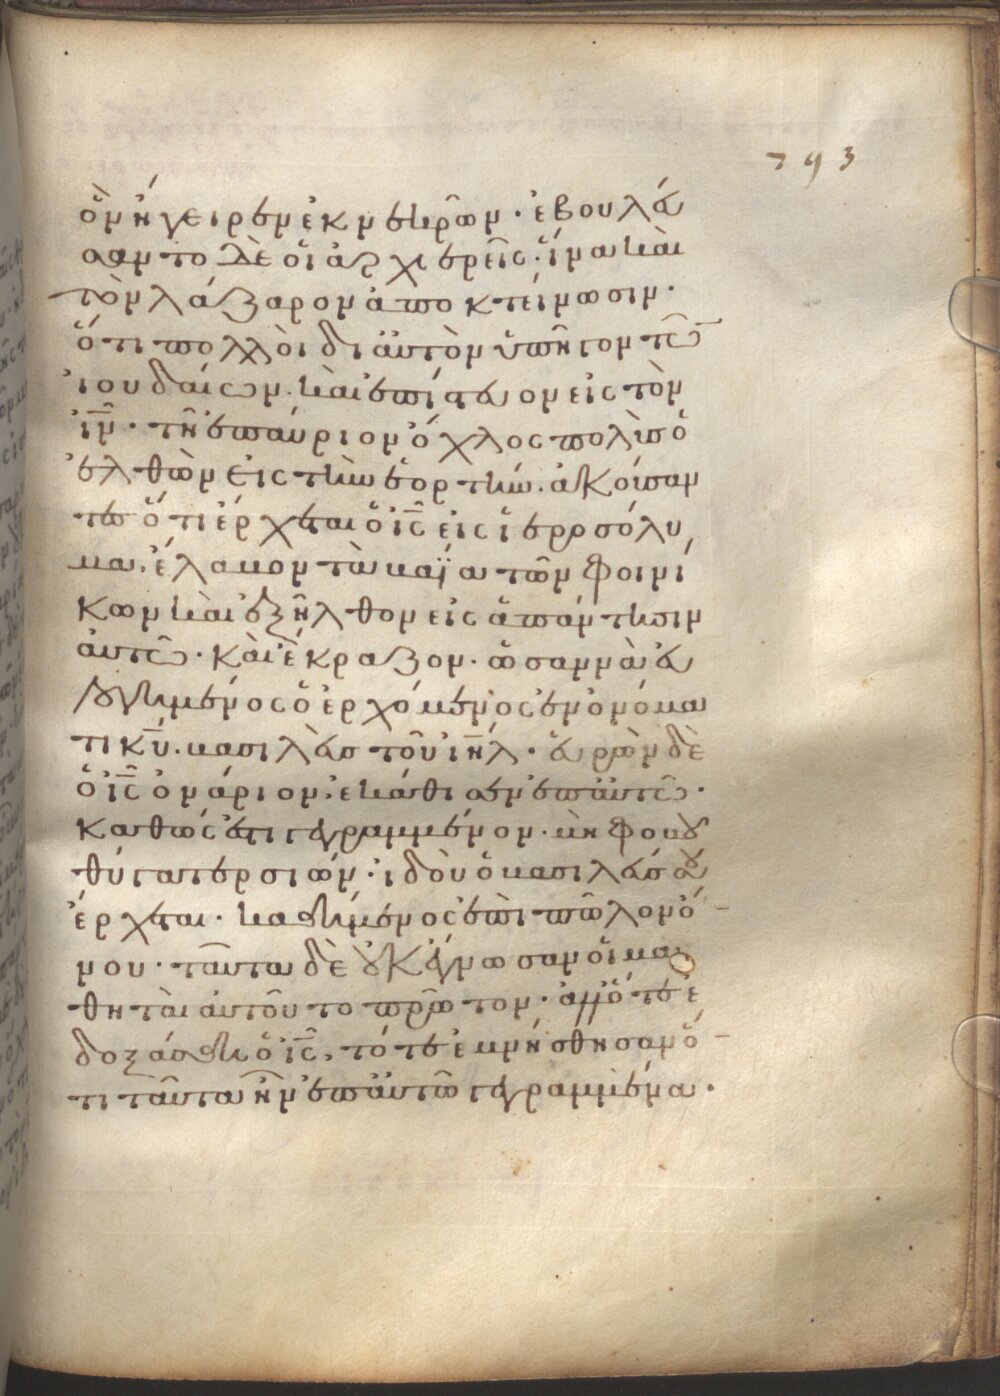 793
ὃν ἤγειρεν ἐκ νεκρῶν · ἐβουλεύ
σαντο δὲ οἱ ἀρχιερεῖς · ἵνα καὶ
τὸν λάζαρον ἀποκτείνωσιν ·
ὅτι πολλοὶ δι αὐτὸν ὑπῆγον τῶν
ἰουδαίων · καὶ ἐπίστευον εἰς τὸν
ιν · τῆ ἐπαύριον ὄχλος πολὺς ὁ
ἐλθὼν εἰς τὴν ἑορτὴν · ἀκούσαν
τες ὅτι ἔρχεται ὁ ις εἰς ἱεροσόλυ
μα · ἔλαβον τὰ βαΐα τῶν φοινί
κων καὶ ἐξῆλθον εἰς ἀπάντησιν
αὐτῶ · καὶ ἔκραζον · ὡσαννὰ εὐ
λογημένος ὁ ἐρχόμενος ἐν ὀνόμα
τι κυ · βασιλεὺς τοῦ ιηλ · εὑρὼν δὲ
ὁ ις ὀνάριον · ἐκάθισεν ἐπ αὐτῶ ·
καθώς ἐστι γεγραμμένον · μὴ φοβοῦ
θύγατερ σιών · ἰδοὺ ὁ βασιλεύς σου
ἔρχεται · καθήμενος ἐπὶ πῶλον ὄ
νου · ταῦτα δὲ οὐκ ἔγνωσαν οἱ μα
θηταὶ αὐτοῦ το πρῶτον · ἀλλ ὅτε ἐ
δοξάσθη ὁ ις, τότε ἐμνήσθησαν ὅ
τι ταῦτα ἦν ἐπ αὐτῶ γεγραμμένα ·